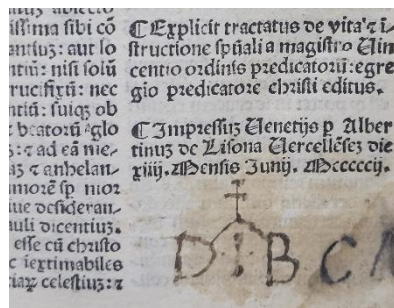 antiuʒ abiecto
issima sibi cõ
antiuʒ: aut so
ntiũ: nisi solũ
rucifixũ: nec
ntiũ: suiqʒ ob
⁊ beatorũ ⁊ glo
ʒ: ⁊ ad eã nie-
aʒ ⁊ anhelan-
morẽ sp mor
ue desideran-
auli dicentiuʒ.
esse cũ christo
c iextimabiles
tiaʒ celestiuʒ: ⁊
¶ Explicit tractatus de vita ⁊ i-
structione spũali a magistro Uin
centio ordinis predicatorũ: egre
gio predicatore christi editus.
¶ Impressuʒ Uenetijs p Alber
tinuʒ de Lisona Uercellẽseʒ die
xiiij. Mensis Junij. Mcccccij.
D I B C A